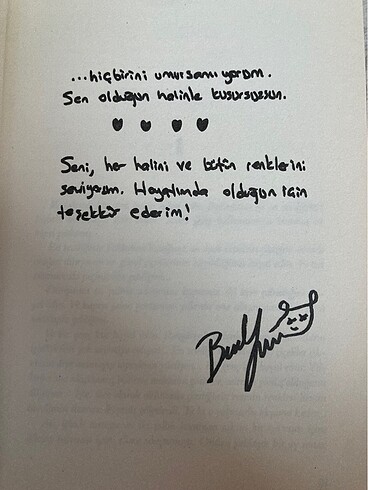 ...hiçbirini umursamıyorum.
Sen olduğun halinle kusursuzsun.
Seni, her halini ve bütün renklerini
seviyorum. Hayatımda olduğun için
teşekkür ederim!